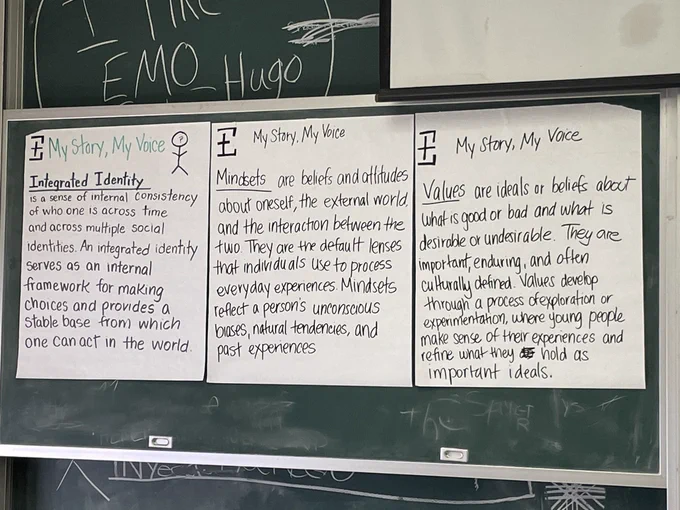 I
EMO Hugo
E My Story, My Voice
Integrated Identity
is a sense of internal consistency
of who one is across time
and across multiple social
identities. An integrated identity
serves as an internal
framework for making
choices and provides a
stable base from which
one can act in the world.
E My Story, My Voice
Mindsets are beliefs and attitudes
about oneself, the external world
and the interaction between the
two. They are the default lenses
that individuals use to process
everyday experiences. Mindsets
reflect a person's unconscious
biases, natural tendencies, and
past experiences
E My Story, My Voice
Values are ideals or beliefs about
what is good or bad and what is
desirable or undesirable. They are
important, enduring, and often
culturally defined. Values develop
through a process of exploration or
experimentation, where young people
make sense of their experiences and
refine what they hold as
important ideals.